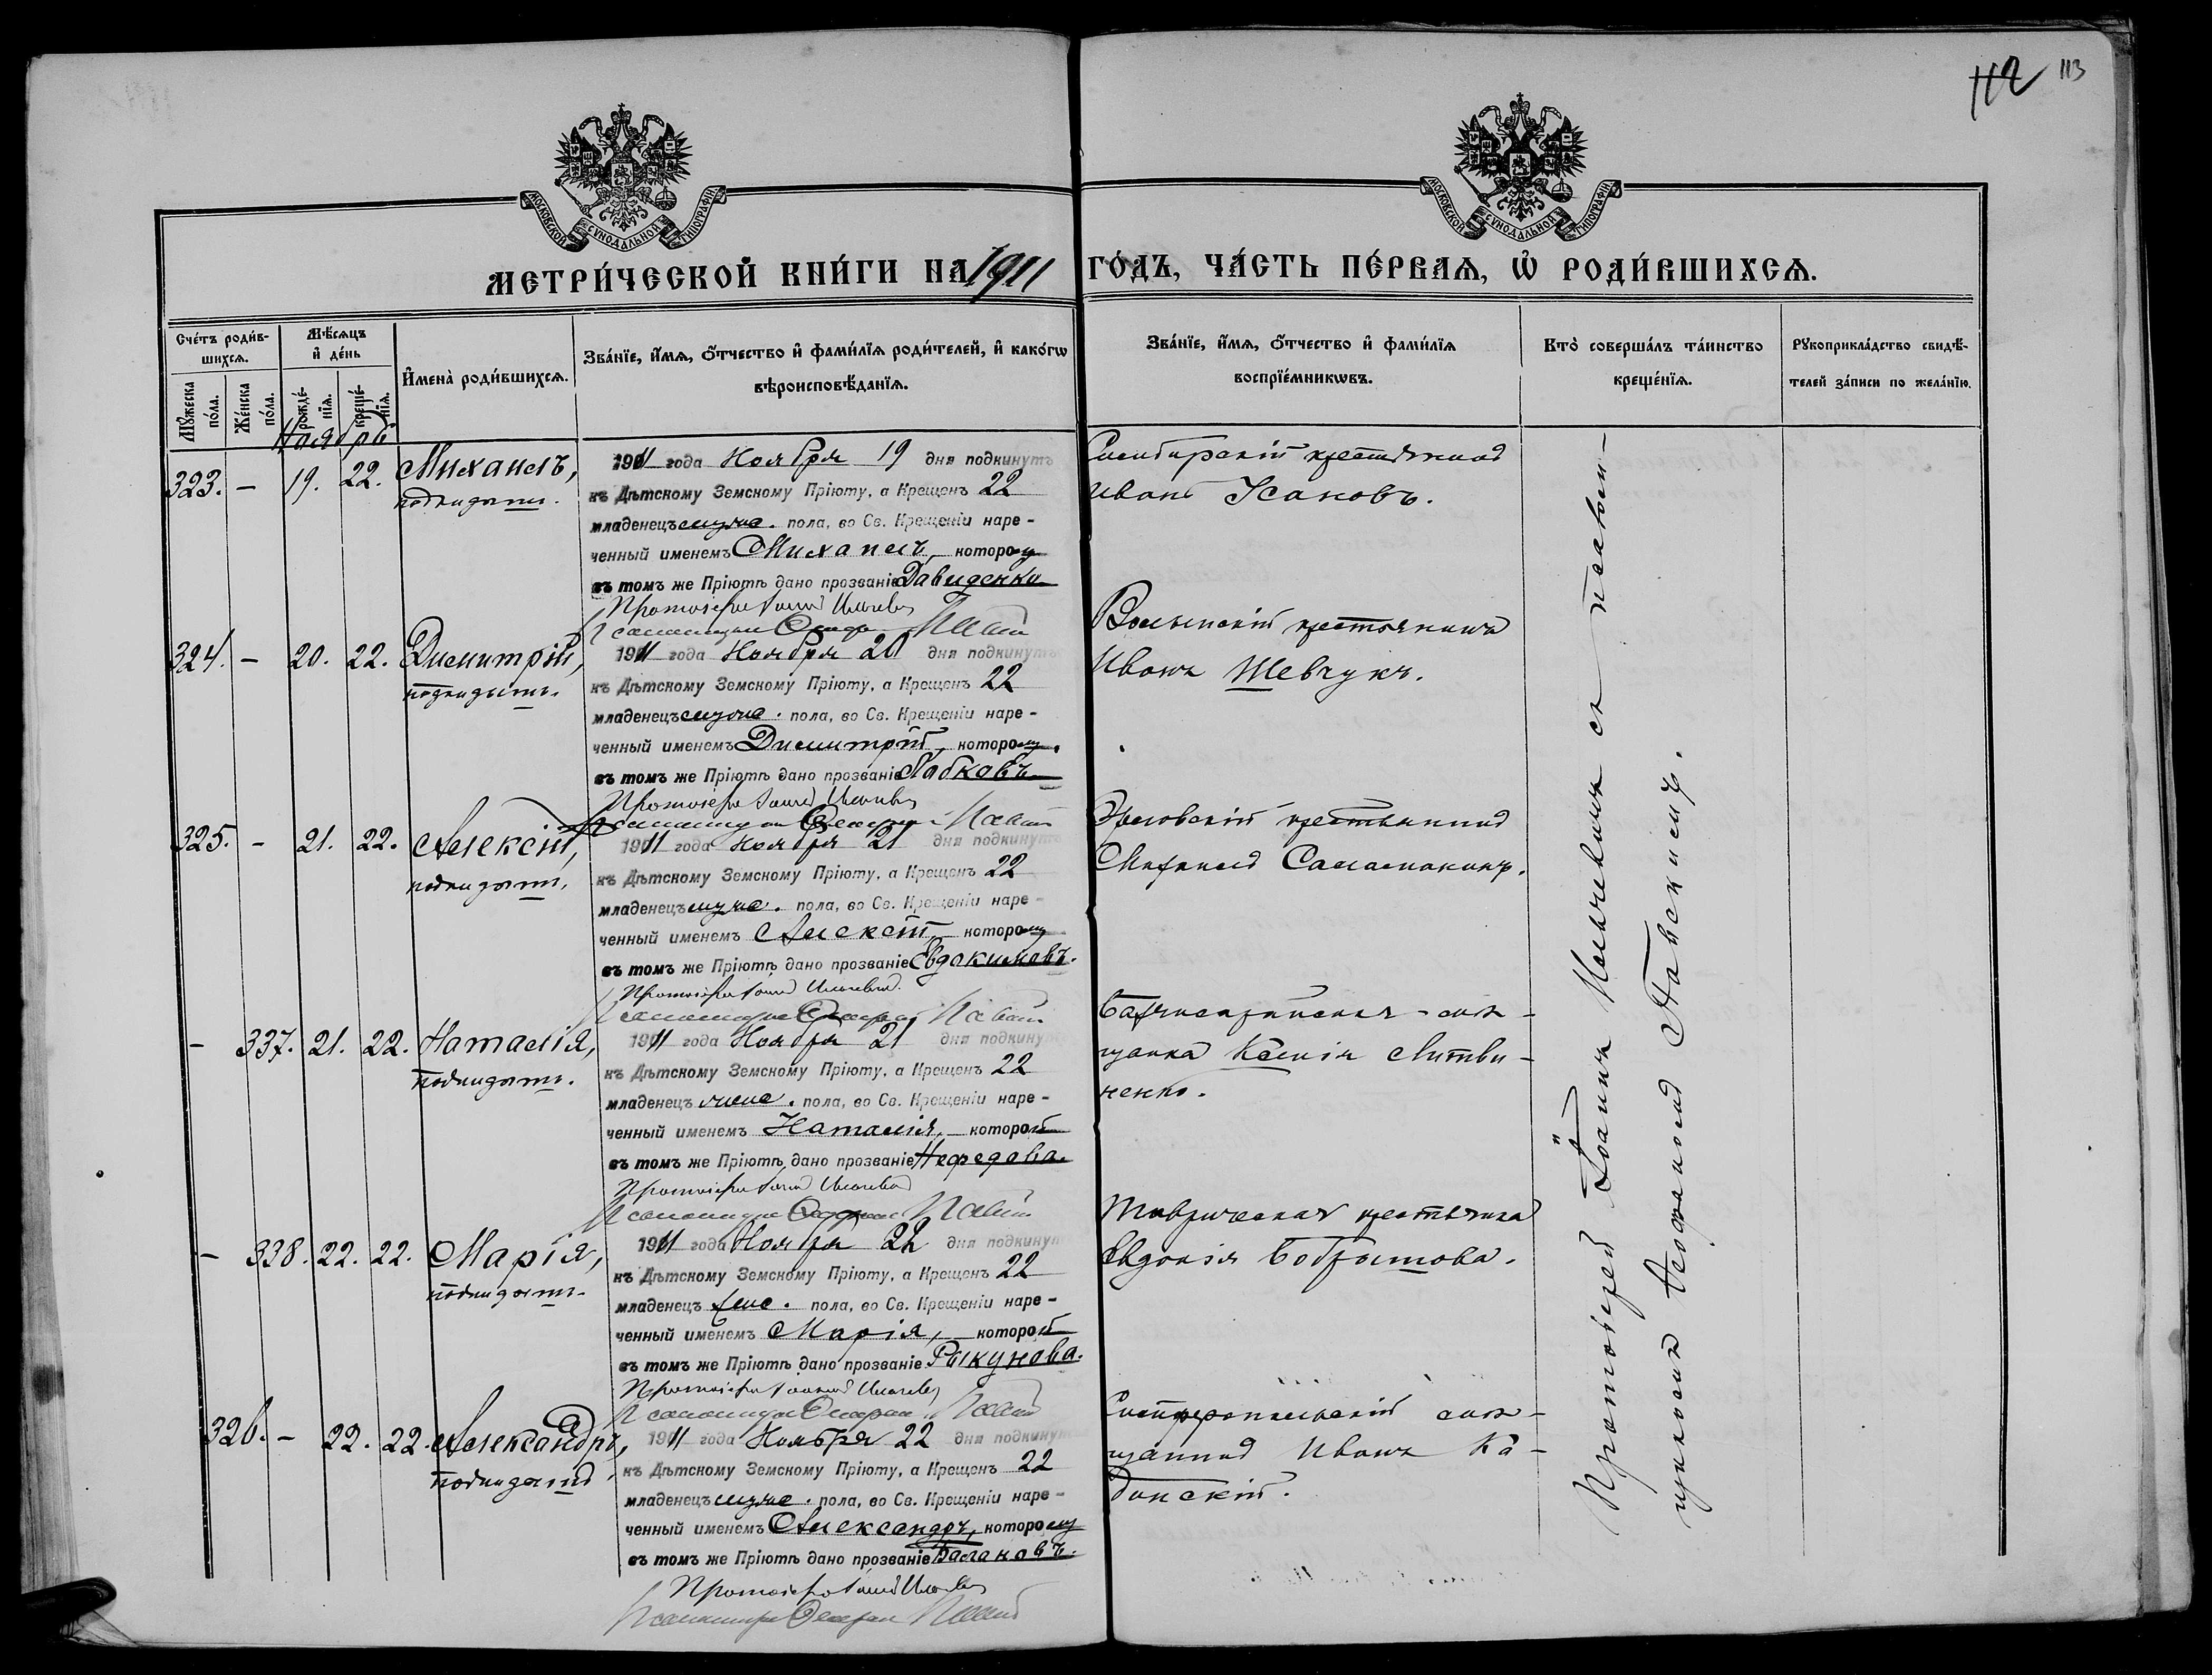 112 113
МОСКОВСКОЙ СѴНОДАЛЬНОЙ ТИПОГРАФІИ
МОСКОВСКОЙ СѴНОДАЛЬНОЙ ТИПОГРАФІИ
МЕТРИ́ЧЕСКОЙ КНИ́ГИ НА 1911 ГО́ДЪ, ЧА́СТЬ ПЕ́РВАѦ, Ѽ РОДИ́ВШИХСѦ.
Сче́тъ роди́в-
шихсѧ.
Мꙋжеска по́ла.
Же́нска по́ла.
Мѣ́сѧцъ и҆ де́нь
рожде́-
нїѧ.
креще́-
нїѧ.
И҆мена̀ роди́вшихсѧ.
Зва́нїе, и҆́мѧ, ѻ҆́тчество и҆ фами́лїѧ роди́телей, и҆ како́гѡ
вѣроисповѣ́данїѧ.
Зва́нїе, и҆́мѧ, ѻ҆́тчество и҆ фами́лїѧ
воспрїе́мникѡвъ.
Кто̀ соверша́лъ та́инство
креще́нїѧ.
Рꙋкоприкла́дство свидѣ́-
телей за́писи по жела́нїю.
Ноябрь
323. – 19. 22. Михаилъ,
подкидышъ.
1911 года Ноября 19 дня подкинутъ
къ Дѣтскому Земскому Пріюту, а Крещенъ 22
младенецъ муже. пола, во Св. Крещеніи наре-
ченный именемъ Михаилъ, которому
въ томъ же Пріютѣ дано прозваніе Давиденко
Протоіерей Іоаннъ
Псаломщикъ
Симбирскій крестьянинъ
Иванъ Усановъ.
324. – 20. 22. Димитрій,
подкидышъ.
1911 года Ноября 20 дня подкинутъ
къ Дѣтскому Земскому Пріюту, а Крещенъ 22
младенецъ муже. пола, во Св. Крещеніи наре-
ченный именемъ Димитрій, которому
въ томъ же Пріютѣ дано прозваніе Лабковъ
Протоіерей Іоаннъ
Псаломщикъ
Волынскій крестьянинъ
Иванъ Шевчукъ.
325. – 21. 22. Алексій,
подкидышъ.
1911 года Ноября 21 дня подкинутъ
къ Дѣтскому Земскому Пріюту, а Крещенъ 22
младенецъ муже. пола, во Св. Крещеніи наре-
ченный именемъ Алексій, которому
въ томъ же Пріютѣ дано прозваніе Евдокимовъ.
Протоіерей Іоаннъ
Псаломщикъ
Орловскій крестьянинъ
Михаилъ Саламакинъ.
– 337. 21. 22. Наталія,
подкидышъ.
1911 года Ноября 21 дня подкинутъ
къ Дѣтскому Земскому Пріюту, а Крещенъ 22
младенецъ жене. пола, во Св. Крещеніи наре-
ченный именемъ Наталія, которой
въ томъ же Пріютѣ дано прозваніе Нефедова.
Протоіерей Іоаннъ
Псаломщикъ
Бахчисарайская мѣ-
щанка Ксенія Литви-
ненко.
– 338. 22. 22. Марія,
подкидышъ.
1911 года Ноября 22 дня подкинутъ
къ Дѣтскому Земскому Пріюту, а Крещенъ 22
младенецъ жене. пола, во Св. Крещеніи наре-
ченный именемъ Марія, которой
въ томъ же Пріютѣ дано прозваніе Рыкунова.
Протоіерей Іоаннъ
Псаломщикъ
Таврическая крестьянка
Евдокія Бобрышова.
326. – 22. 22. Александръ,
подкидышъ.
1911 года Ноября 22 дня подкинутъ
къ Дѣтскому Земскому Пріюту, а Крещенъ 22
младенецъ муже. пола, во Св. Крещеніи наре-
ченный именемъ Александръ, которому
въ томъ же Пріютѣ дано прозваніе Балановъ.
Протоіерей Іоаннъ
Псаломщикъ
Симферопольскій мѣ-
щанинъ Иванъ Ка-
динскій.
Протоіерей Іоаннъ съ псалом-
щикомъ Павскимъ.